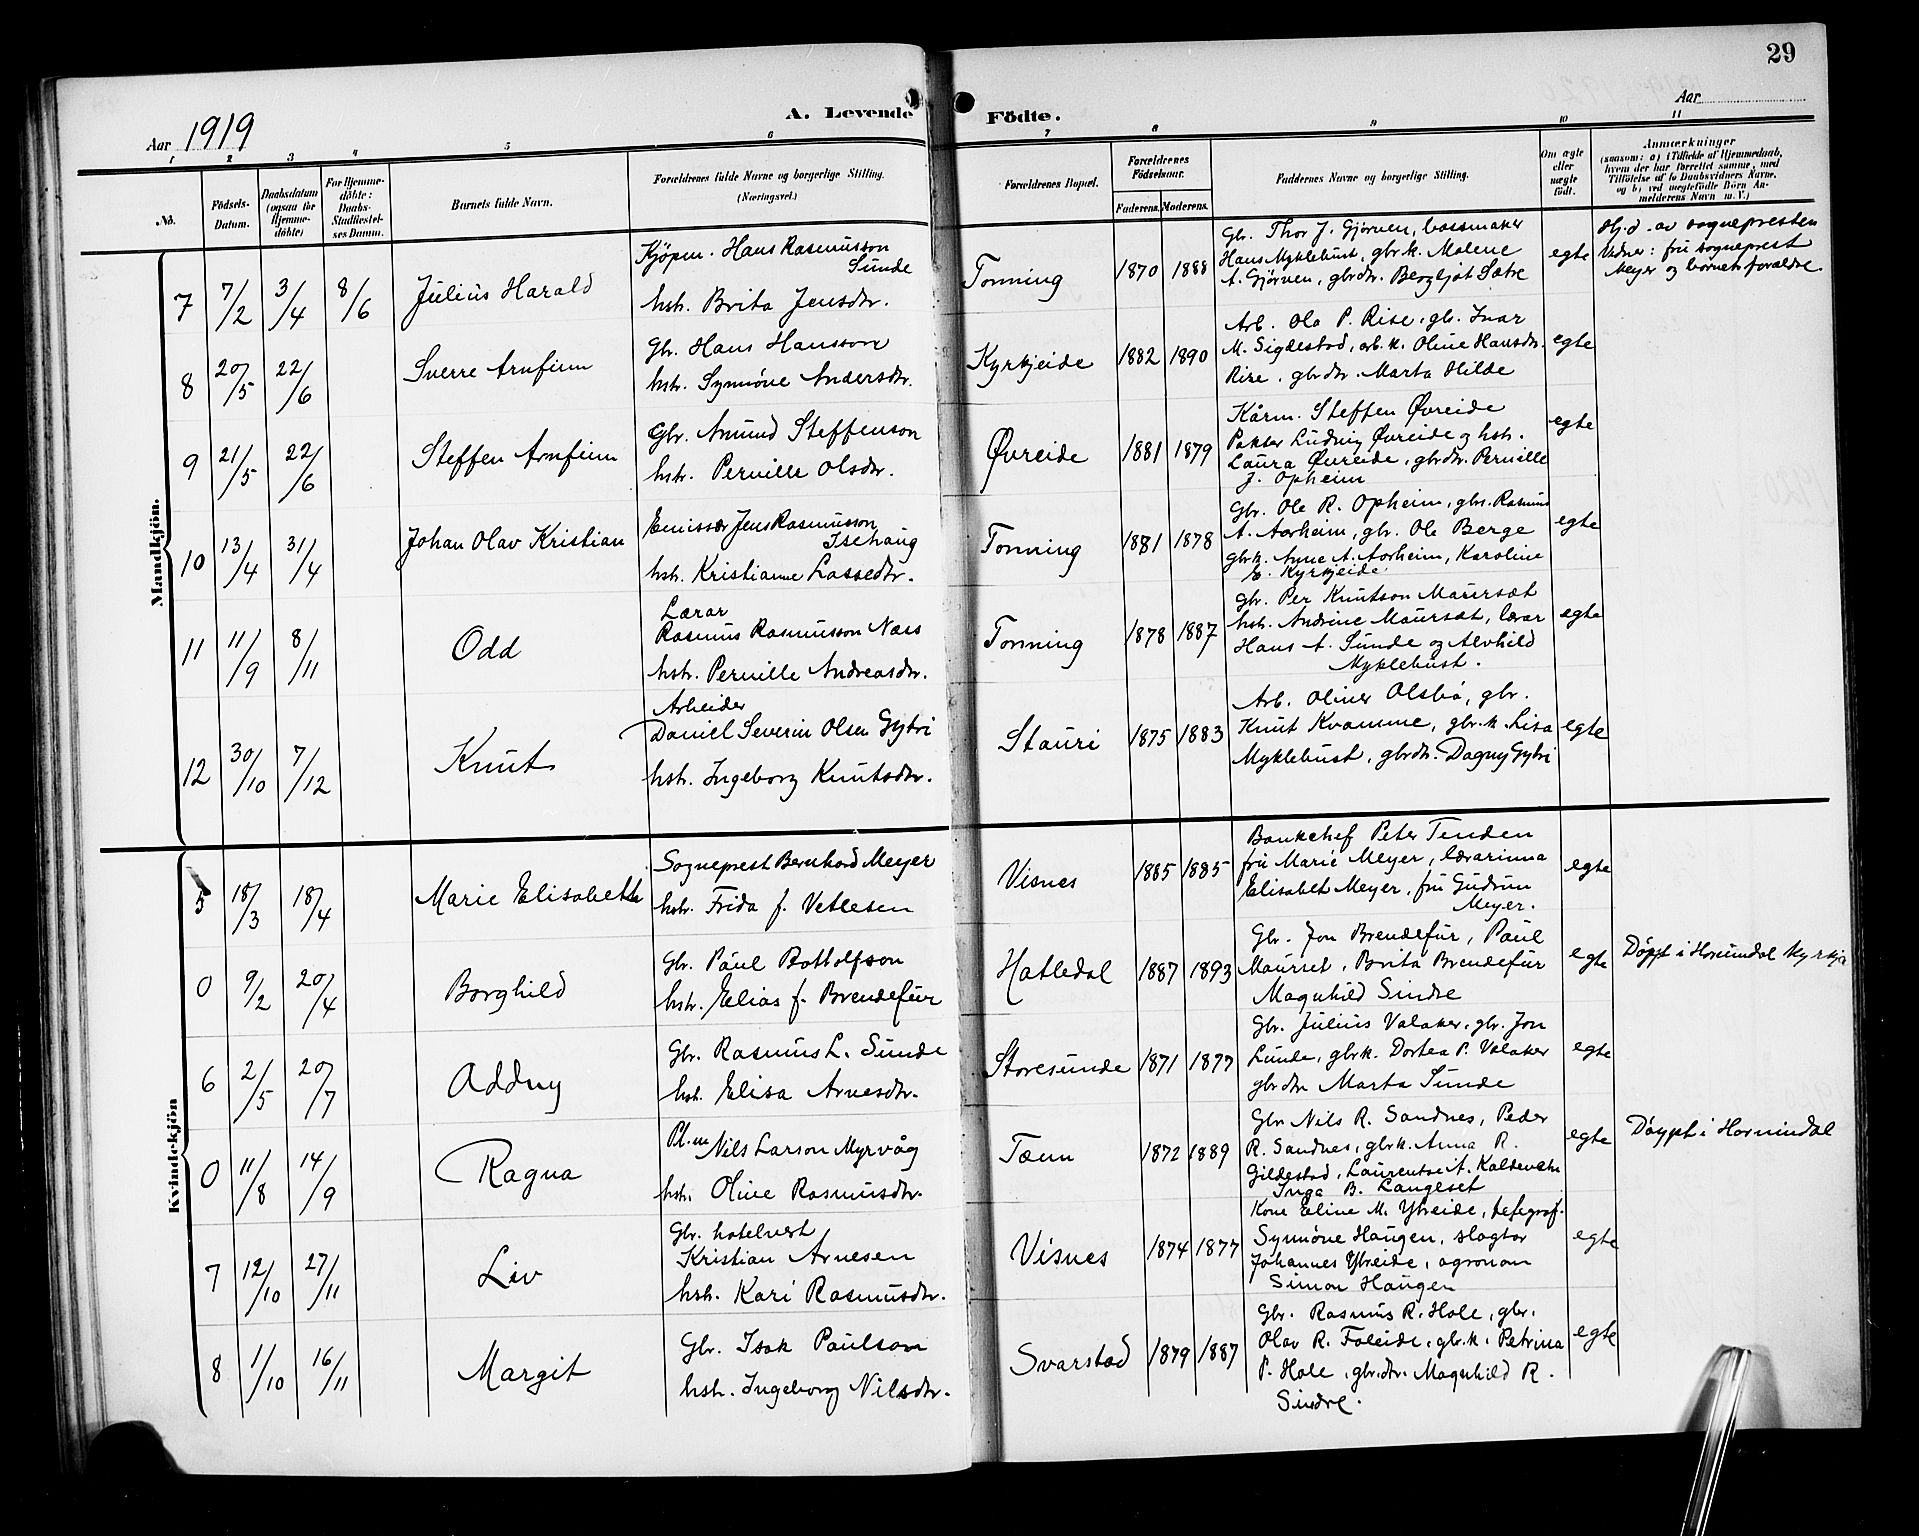 29
Aar 1919
A. Levende Födte.
Aar
1 2 3 4 5 6 7 8 9 10 11
No.
Födsels-
Datum.
Daabsdatum
(ogsaa for
Hjemme-
döbte)
For Hjemme-
döbte:
Daabs-
Stadfæstel-
ses Datum.
Barnets fulde Navn.
Forældrenes fulde Navne og borgerlige Stilling.
(Næringsvei.)
Forældrenes Bopæl.
Forældrenes
Födselsaar.
Faderens. Moderens.
Faddernes Navne og borgerlige Stilling.
Om ægte
eller
uægte
födt.
Anmærkninger
(saasom: a) i Tilfælde af Hjemmedaab,
hvem der har forrettet samme, med
Tilföielse af to Daabsvidners Navne,
og b) ved uægtefödte Börn An-
melderens Navn m. V.)
Mandkjön.
7 7/2 3/4 8/6 Julius Harald
Kjöpm. Hans Rasmusson
Sunde
hstr. Brita Jensdtr.
Tonning 1870 1888
Gbr. Thor J. Gjørven, bøssmaker
Hans Myklebust, gbr.k. Malene
A. Gjørven, gbrdtr. Bergljot Sætre
egte
Hj.d. av sognepresten
Vidner: fru sogneprest
Meyer og barnets foræeldre.
8 20/5 22/6 Sverre Arnfinn
Gbr. Hans Hansson
hstr. Synnöve Andersdtr.
Kyrkjeide 1882 1890
Arb. Ola P. Rise, gb. Ivar
M. Sigdestad, arb.k. Oline Hansdtr.
Rise, gbrdtr. Marta Hilde
egte
9 21/5 22/6 Steffen Arnfinn
Gbr. Amund Steffenson
hstr. Pernille Olsdtr.
Øvreide 1881 1879
Kårm. Steffen Øvreide
Pakter Ludvig Øvreide og hstr.
Laura Øvreide, gbrdtr. Pernille
J. Opheim
egte
10 13/4 31/4 Johan Olav Kristian
Emissær Jens Rasmusson
Isehaug
hstr. Kristianne Lassedtr.
Tonning 1881 1878
Gbr. Ole R. Opheim, gbrs. Rasmus
A. Aarheim, gbr. Ole Berge
gbrk. Anne A. Aarheim, Karoline
E. Kyrkjeide
egte
11 11/9 8/11 Odd
Lærar
Rasmus Rasmusson Næss
hstr. Pernille Andreasdtr.
Tonning 1878 1887
Gbr. Per Knutson Maursæt
hstr. Andrine Maursæt, lærar
Hans A. Sunde og Alvhild
Myklebust.
egte
12 30/10 7/12 Knut
Arbeider
Daniel Severin Olsen Gytri
hstr. Ingeborg Knutsdtr.
Stauri 1875 1883
Arb. Oliver Olsbø, gbr.
Knut Kvamme, gbr.k. Lisa
Myklebust, gbrdtr. Dagny Gytri
egte
Kvindekjön
5 18/3 18/4 Marie Elisabeth
Sogneprest Bernhard Meyer
hstr. Frida f. Vetlesen
Visnes 1885 1885
Bankchef Peter Tenden
fru Marie Meyer, lærarinna
Elisabet Meyer, fru Gudrun
Meyer.
egte
0 9/2 20/4 Borghild
Gbr. Paul Bottolfson
hstr. Elias f. Brendefur
Hatledal 1887 1893
Gbr. Jon Brendefur, Paul
Maurset, Brita Brendefur
Magnhild Sindre
egte
Døypt i Hornindal Kyrkja
6 2/5 20/7 Oddny
Gbr. Rasmus L. Sunde
hstr. Elisa Arnesdtr.
Storesunde 1871 1877
Gbr. Julius Valaker, gbr. Jon
Sunde, gbrk. Dortea P. Valaker
gbrdtr Marta Sunde
egte
0 11/8 14/9 Ragna
Pl.m Nils Larson Myrvåg
hstr. Oline Rasmusdtr.
Tænn 1872 1889
Gbr Nils R. Sandnes, Peder
R. Sandnes, gbrk. Anna R.
Gildestad, Laurentse A. Kaldevatn
Inga B. Langeset
egte
Døypt i Hornindal
7 12/10 27/11 Liv
Gbr. hotelvert
Kristian Arnesen
hstr. Kari Rasmusdtr.
Visnes 1874 1877
Kone Eline M. Ytreide, telegraf.
Synnöve Haugen, slagtar
Johannes Ytreide, agronom
Simon Haugen
egte
8 1/10 16/11 Margit
Gbr. Isak Paulson
hstr. Ingeborg Nilsdtr.
Svarstad 1879 1887
Gbr. Rasmus R. Hole, gbr.
Olav R. Foleide, gbr.k. Petrina
P. Hole, gbrdtr. Magnhild R.
Sindre.
egte